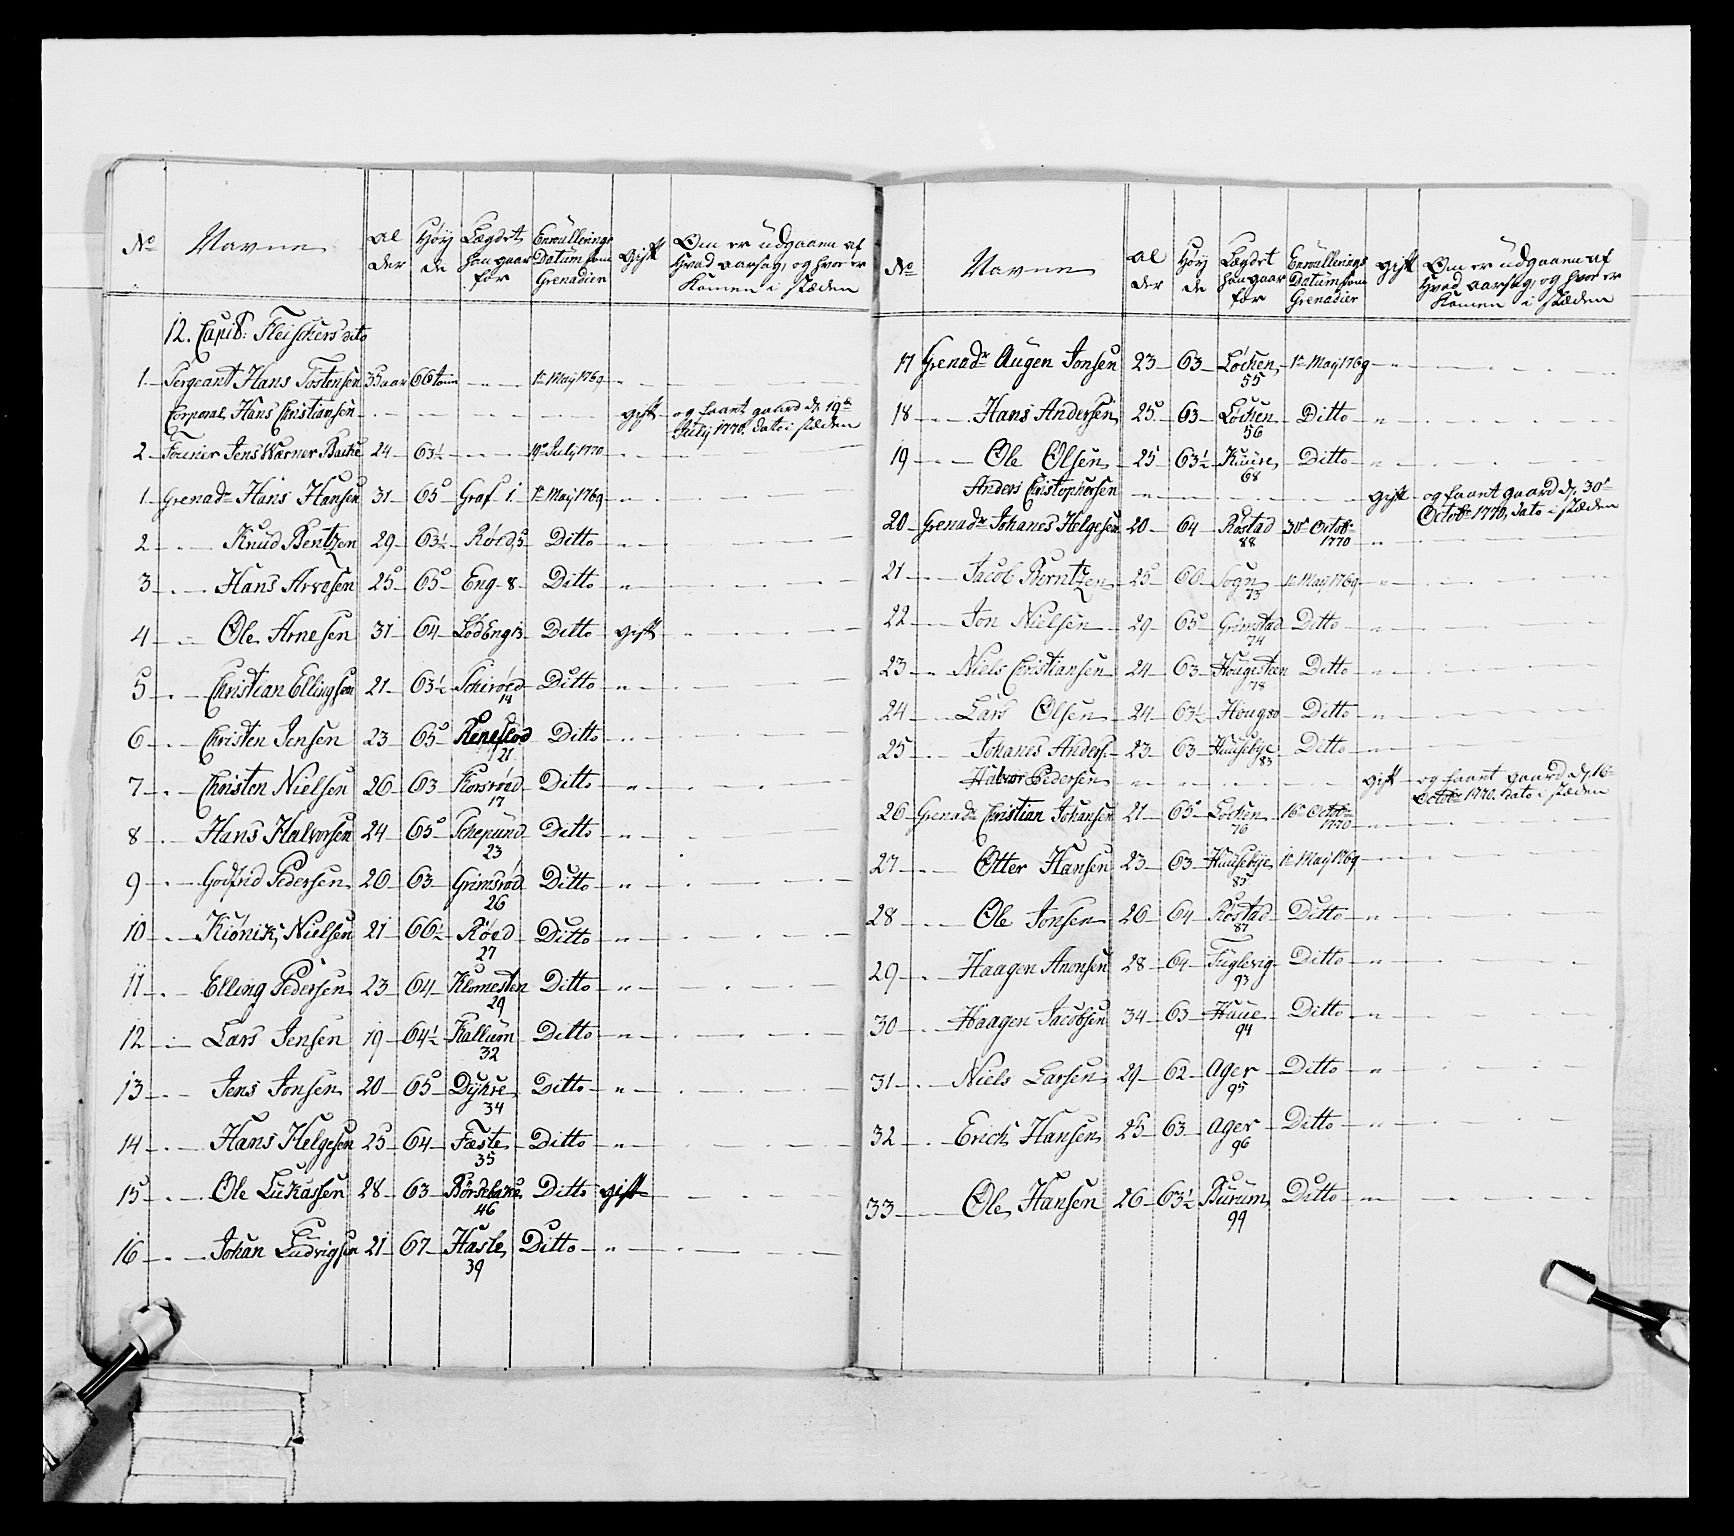 No Navne Al der Høy de Lægdet han gaar for Enroullerings Datum som Grenadier gift Om er udgaaen af Hvad aarsag, og hvor er Komen i stæden
12. Capit: Fleischers dito
1 Sergeant Hans Tostensen 35 aar 66 tom 1te May 1769
Corporal Hans Christiansen gift og faaet gaard d. 19de July 1770. dato i stæden
2 Fourier Jens Warner Backe 24 63½ 19de July 1770
1 Grenadr Hans Hansen 31 65 Graf 1 1te May 1769
2 Knud Bentzen 29 63½ Røed 5 Ditto
3 Hans Arvesen 25 65 Eng 8 Ditto
4 Ole Arnesen 31 64 Lød Eng 13 Ditto gift
5 Christian Ellingsen 21 63½ Schirød 14 Ditto
6 Christen Jensen 23 65 21 Ditto
7 Christen Nielsen 26 63 Korsrød 17 Ditto
8 Hans Halvorsen 24 65 23 Ditto
9 Godfrid Pedersen 20 63 Grimsrød 26 Ditto
10 Kiønik Nielsen 21 66½ Røed 27 Ditto
11 Elling Pedersen 23 64 Klomesten 29 Ditto
12 Lars Jensen 19 64½ Kallum 32 Ditto
13 Jens Jonsen 20 65 Dyhre 34 Ditto
14 Hans Helgesen 25 64 Faste 35 Ditto
15 Ole Lukassen 28 63 Børsebake 46 Ditto gift
16 Johan Ludvigsen 21 67 Hasle 39 Ditto
No Navne Al der Høy de Lægdet han gaar for Enroullerings Datum som Grenadier gift Om er udgaaen af Hvad aarsag, og hvor er Komen i stæden
17 Grenadr Augen Jonsen 23 63 Løchen 55 1te May 1769
18 Hans Andersen 25 63 Løchen 56 Ditto
19 Ole Olsen 25 63½ Kuure 68 Ditto
Anders Christophersen gift og faaet gaard d. 30te Octobr 1770, dato i stæden
20 Grenadr Johanes Helgesen 20 64 Røstad 88 30te Octobr 1770
21 Jacob Berntzen 25 66 Sogn 73 1te May 1769
22 Jon Nielsen 29 65 Grimstad 74 Ditto
23 Niels Christiansen 24 63 Hougesteen 78 Ditto
24 Lars Olsen 24 63½ Ditto
25 Johanes Anders: 23 63 Huusebye 83 Ditto
Halvor Pedersen gift og faaet gaard d. 16te Octobr 1770. dato i stæden
26 Grenadr Christian Johansen 21 65 Løchen 76 16de Octobr 1770
27 Otter Hansen 23 63 Huusebye 85 1te May 1769
28 Ole Jonsen 26 64 Røstad 87 Ditto
29 Haagen Anonsen 28 64 Fuglevig 93 Ditto
30 Haagen Jacobsen 34 63 Haue 94 Ditto
31 Niels Larsen 29 62 Ager 95 Ditto
32 Erich Hansen 25 63 Ager 96 Ditto
33 Ole Hansen 26 63½ Burum 99 Ditto